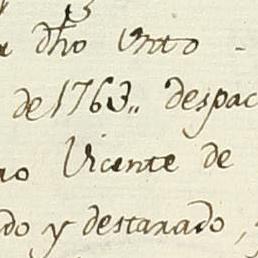 dho Unto -
de 1763,, despac
no Vicente de
do y destarado,